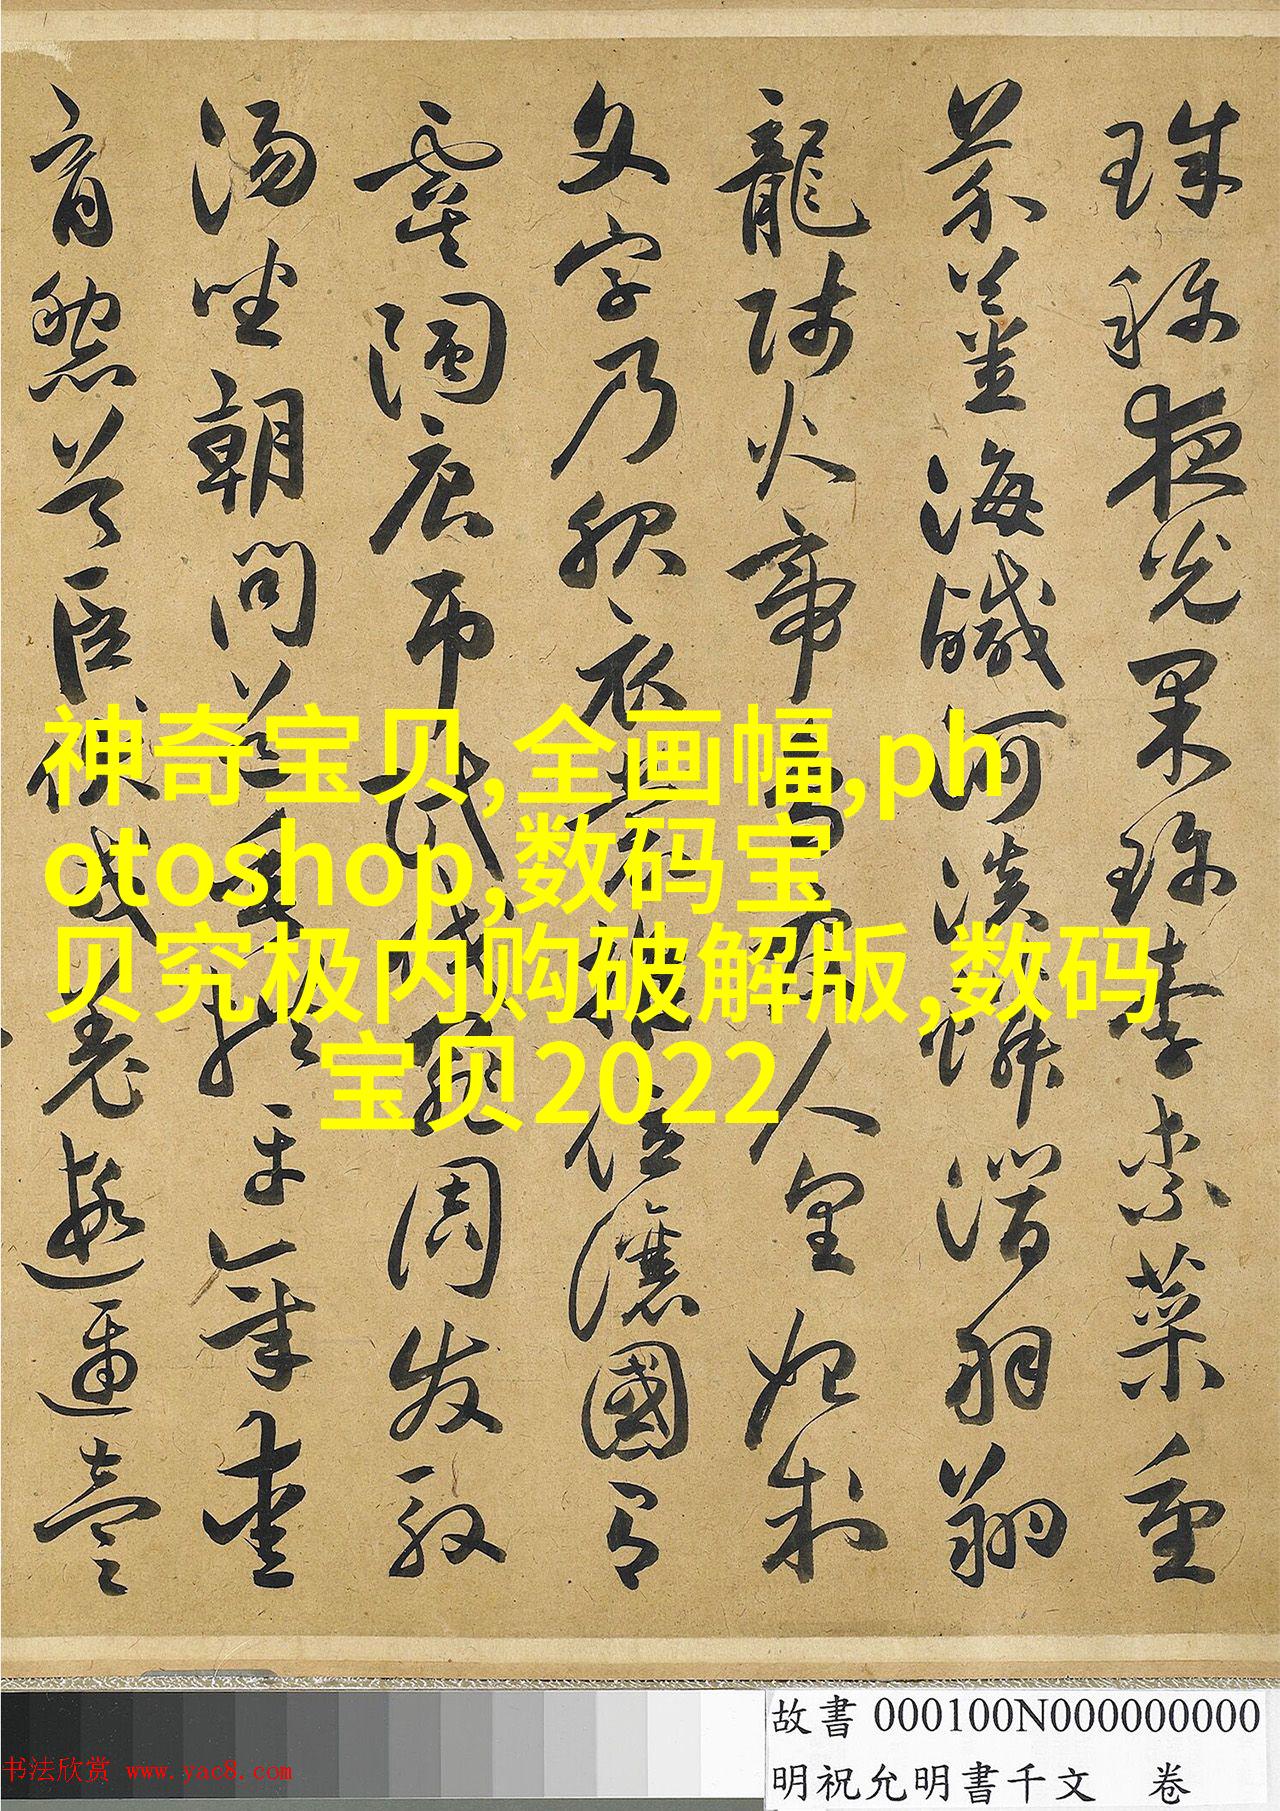 珠称夜光果珍李柰菜重
芥薑海鹹河淡鱗潛羽翔
龍師火帝鳥官人皇始制
文字乃服衣裳推位讓國有
虞陶唐弔民伐罪周发殷
湯坐朝問道垂拱平章愛
育黎首臣伏戎羌遐邇壹
神奇宝贝,全画幅,ph
otoshop,数码宝
贝究极内购破解版,数码
宝贝2022
故書 000100N000000000
明祝允明書千文 卷
书法欣赏 www.yac8.com